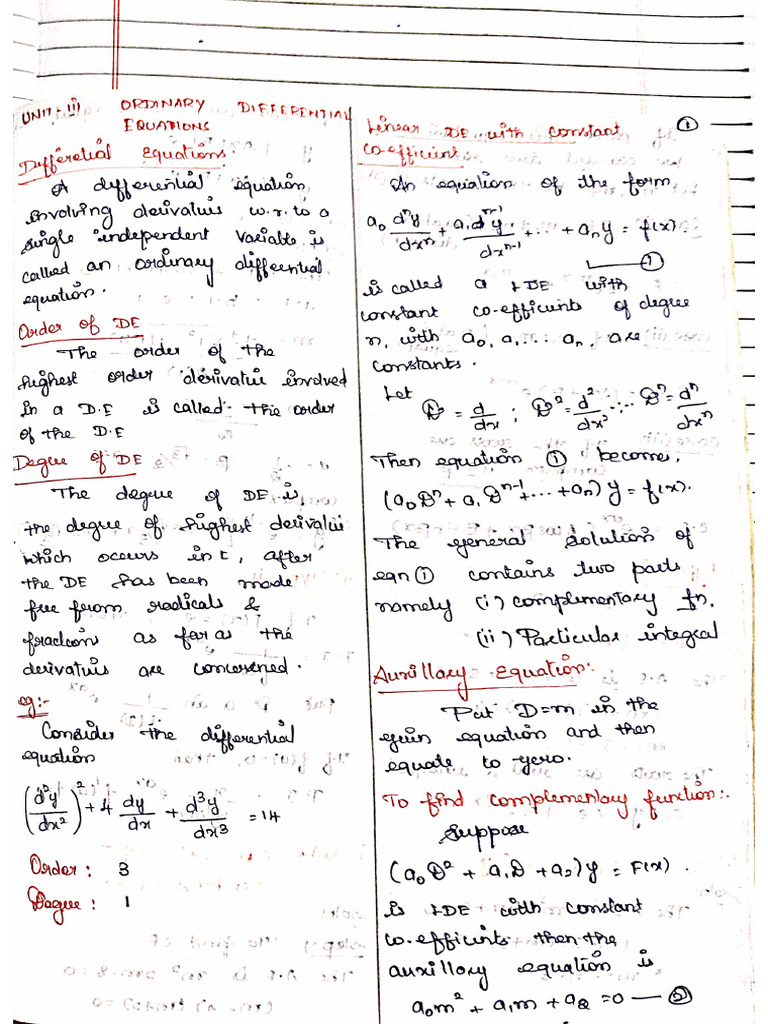 UNIT-III ORDINARY DIFFERENTIAL
EQUATIONS
Differetial Equations
A differential equation
involving derivatives w.r.to a
single independent variable is
called an ordinary differential
equation.
Order of DE
The order of the
highest order derivative involved
in a D.E is called the order
of the D.E
Degree of DE
The degree of DE is,
the degree of highest derivative
which occurs in it, after
the DE has been made
free from radicals &
fractions as far as the
derivatives are concerned.
eg:-
Consider the differential
equation
(d²y/dx²)² + 4 dy/dx + d³y/dx³ = 14
Order : 3
Degree : 1
①
Linear DE with constant
co-efficient
An equation of the form
a₀ dⁿy/dxⁿ + a₁ dⁿ⁻¹y/dxⁿ⁻¹ + ... + aₙy = f(x)
①
is called a LDE with
constant co-efficients of degree
n, with a₀, a₁ ... aₙ, are
constants.
Let
D = d/dx ; D² = d²/dx² ... Dⁿ = dⁿ/dxⁿ
Then equation ① become,
(a₀Dⁿ + a₁Dⁿ⁻¹ + ... + aₙ) y = f(x).
The general solution of
eqn ① contains two parts
namely (i) complementary fn,
(ii) Particular integral
Auxillary Equation:-
Put D=m in the
given equation and then
equate to zero.
To find complementary function:-
Suppose
(a₀D² + a₁D + a₂)y = F(x).
is LDE with constant
co-efficients then the
auxillary equation is
a₀m² + a₁m + a₂ = 0 — ②